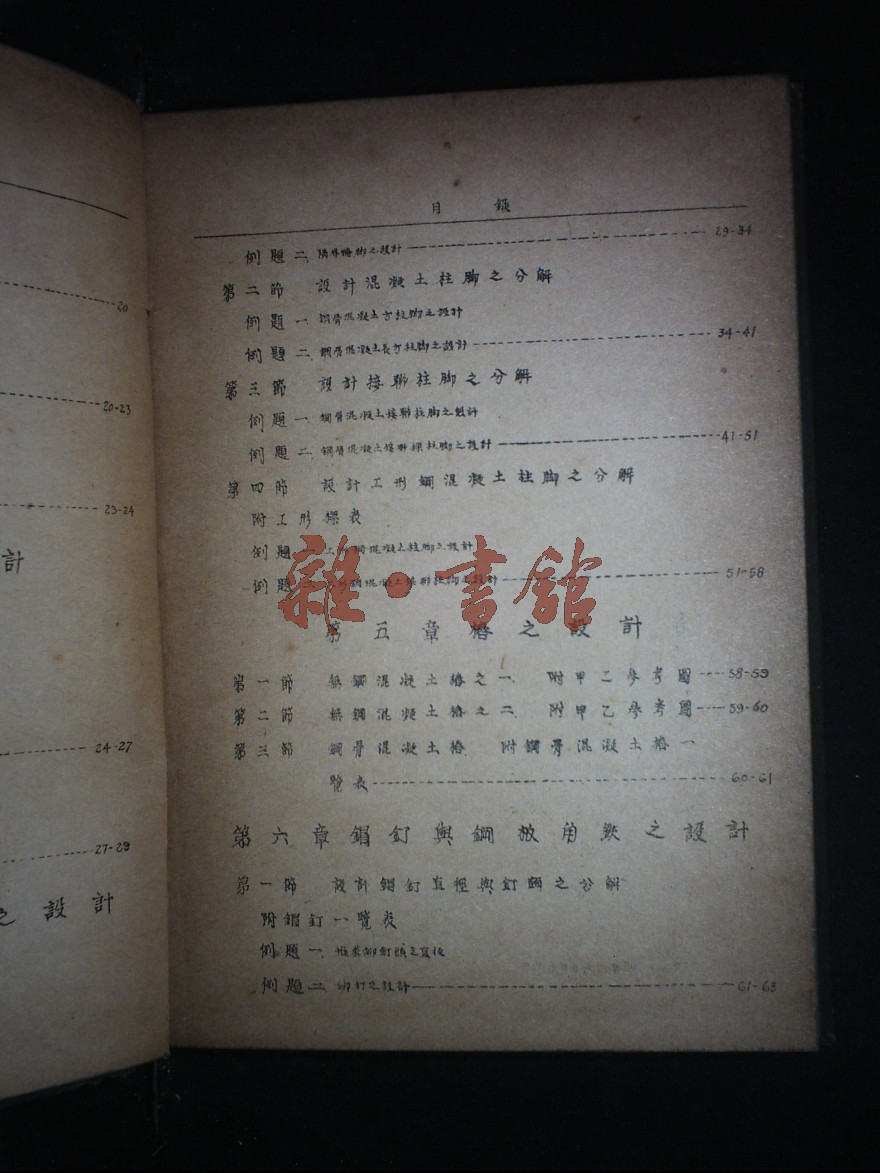 20
20-23
23-24
計
24-27
27-29
之設計
目錄
例題二、隔外牆脚之設計 29-34
第二節 設計混凝土柱脚之分解
例題一、鋼骨混凝土方柱脚之設計
例題二、鋼骨混凝土長方柱脚之設計 34-41
第三節 設計接聯柱脚之分解
例題一、鋼骨混凝土接聯柱脚之設計
例題二、鋼骨混凝土接聯樑柱脚之設計 41-51
第四節 設計工形鋼混凝土柱脚之分解
附工形樑表
例題一、工形鋼混凝土柱脚之設計
例題二、工形鋼混凝土接聯柱脚之設計 51-58
雜·書館
第五章樁之設計
第一節 無鋼混凝土樁之一、附甲乙參考圖 58-59
第二節 無鋼混凝土樁之二、附甲乙參考圖 59-60
第三節 鋼骨混凝土樁 附鋼骨混凝土樁一
覽表 60-61
第六章鍋釘與鋼板角鉄之設計
第一節 設計鍋釘直徑與釘頭之分解
附鍋釘一覽表
例題一、
例題二、鉚釘之設計 61-63